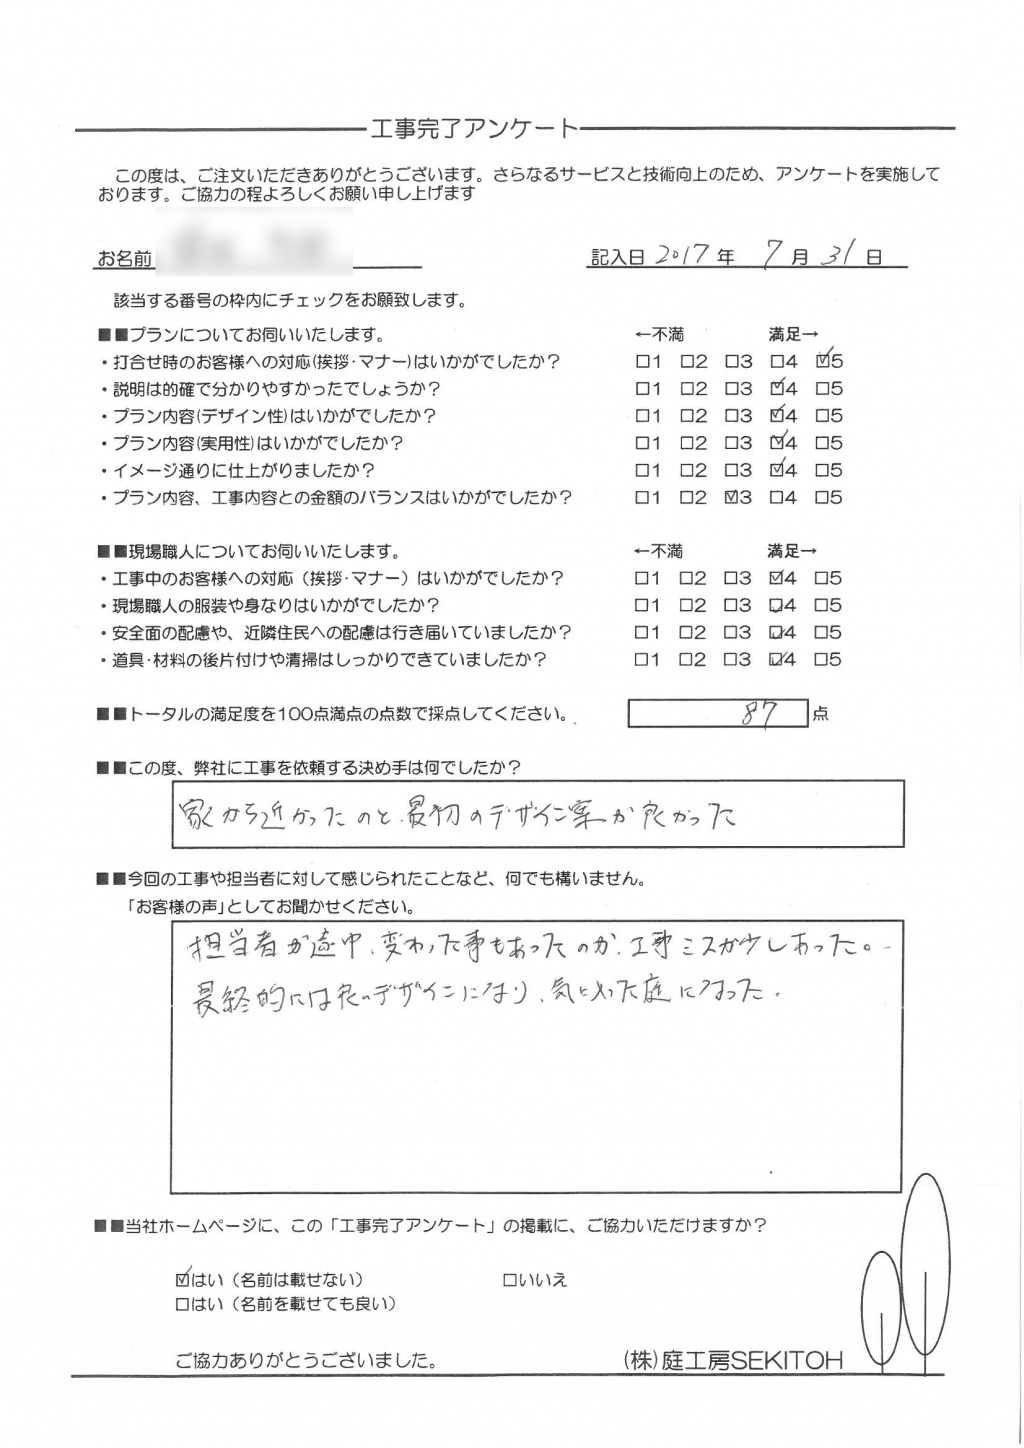 工事完了アンケート
この度は、ご注文いただきありがとうございます。さらなるサービスと技術向上のため、アンケートを実施して
おります。ご協力の程よろしくお願い申し上げます
お名前 記入日 2017 年 7 月 31 日
該当する番号の枠内にチェックをお願致します。
■■プランについてお伺いいたします。 ←不満 満足→
・打合せ時のお客様への対応(挨拶・マナー)はいかがでしたか？ □1 □2 □3 □4 ☑5
・説明は的確で分かりやすかったでしょうか？ □1 □2 □3 ☑4 □5
・プラン内容(デザイン性)はいかがでしたか？ □1 □2 □3 ☑4 □5
・プラン内容(実用性)はいかがでしたか？ □1 □2 □3 ☑4 □5
・イメージ通りに仕上がりましたか？ □1 □2 □3 ☑4 □5
・プラン内容、工事内容との金額のバランスはいかがでしたか？ □1 □2 ☑3 □4 □5
■■現場職人についてお伺いいたします。 ←不満 満足→
・工事中のお客様への対応（挨拶・マナー）はいかがでしたか？ □1 □2 □3 ☑4 □5
・現場職人の服装や身なりはいかがでしたか？ □1 □2 □3 ☑4 □5
・安全面の配慮や、近隣住民への配慮は行き届いていましたか？ □1 □2 □3 ☑4 □5
・道具・材料の後片付けや清掃はしっかりできていましたか？ □1 □2 □3 ☑4 □5
■■トータルの満足度を100点満点の点数で採点してください。 87 点
■■この度、弊社に工事を依頼する決め手は何でしたか？
家から近かったのと、最初のデザイン案が良かった
■■今回の工事や担当者に対して感じられたことなど、何でも構いません。
「お客様の声」としてお聞かせください。
担当者が途中、変わった事もあったのか、工事ミスが少しあった。
最終的には良いデザインになり、気に入った庭になった。
■■当社ホームページに、この「工事完了アンケート」の掲載に、ご協力いただけますか？
☑はい（名前は載せない） □いいえ
□はい（名前を載せても良い）
ご協力ありがとうございました。 (株)庭工房SEKITOH